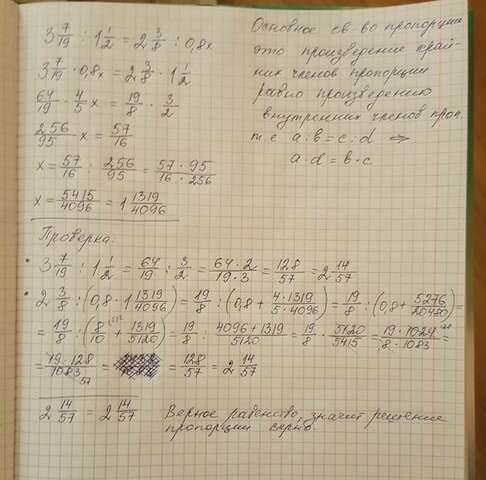 3 7/19 : 1 1/2 = 2 3/8 : 0,8x
3 7/19 · 0,8x = 2 3/8 · 1 1/2
64/19 · 4/5 x = 19/8 · 3/2
256/95 x = 57/16
x = 57/16 : 256/95 = 57 · 95/16 · 256
x = 5415/4096 = 1 1319/4096
Основное св-во пропорции
это произведение край-
них членов пропорции
равно произведению
внутренних членов проп.
т.е a : b = c : d ⇒
a · d = b · c
Проверка:
• 3 7/19 : 1 1/2 = 64/19 : 3/2 = 64 · 2/19 · 3 = 128/57 = 2 14/57
• 2 3/8 : (0,8 · 1 1319/4096) = 19/8 : (0,8 + 4 · 1319/5 · 4096) = 19/8 : (0,8 + 5276/20480) =
= 19/8 : (8/10 + 1319/5120) = 19/8 : 4096 + 1319/5120 = 19/8 · 5120/5415 = 19 · 1024/8 · 1083 =
= 19 · 128/1083 = 128/57 = 2 14/57
2 14/57 = 2 14/57
Верное равенство, значит решение
пропорции верно.